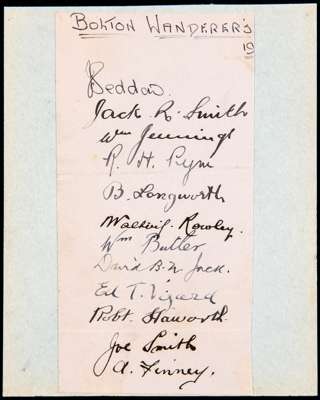 BOLTON WANDERER'S
19
Seddon.
Jack R. Smith
Wm Jennings
R. H. Pym
B. Longworth
Walter Rowley.
Wm Butler
David B. N. Jack.
Ed T. Vizard
Robt. Haworth.
Joe Smith
A. Finney.